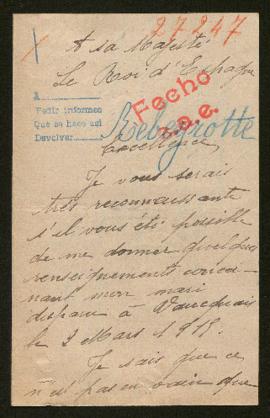 27247
A sa Majesté
Le Roi d'Espagne
A
Pedir informes
Que se hace así
Devolver
Fecho
Excellence,
Je vous serais
très reconnaissante
s'il vous était possible
de me donner quelques
renseignements concer-
nant mon mari
disparu à Vauquois
le 2 Mars 1915.
Je sais que ce
n'est pas en vain que